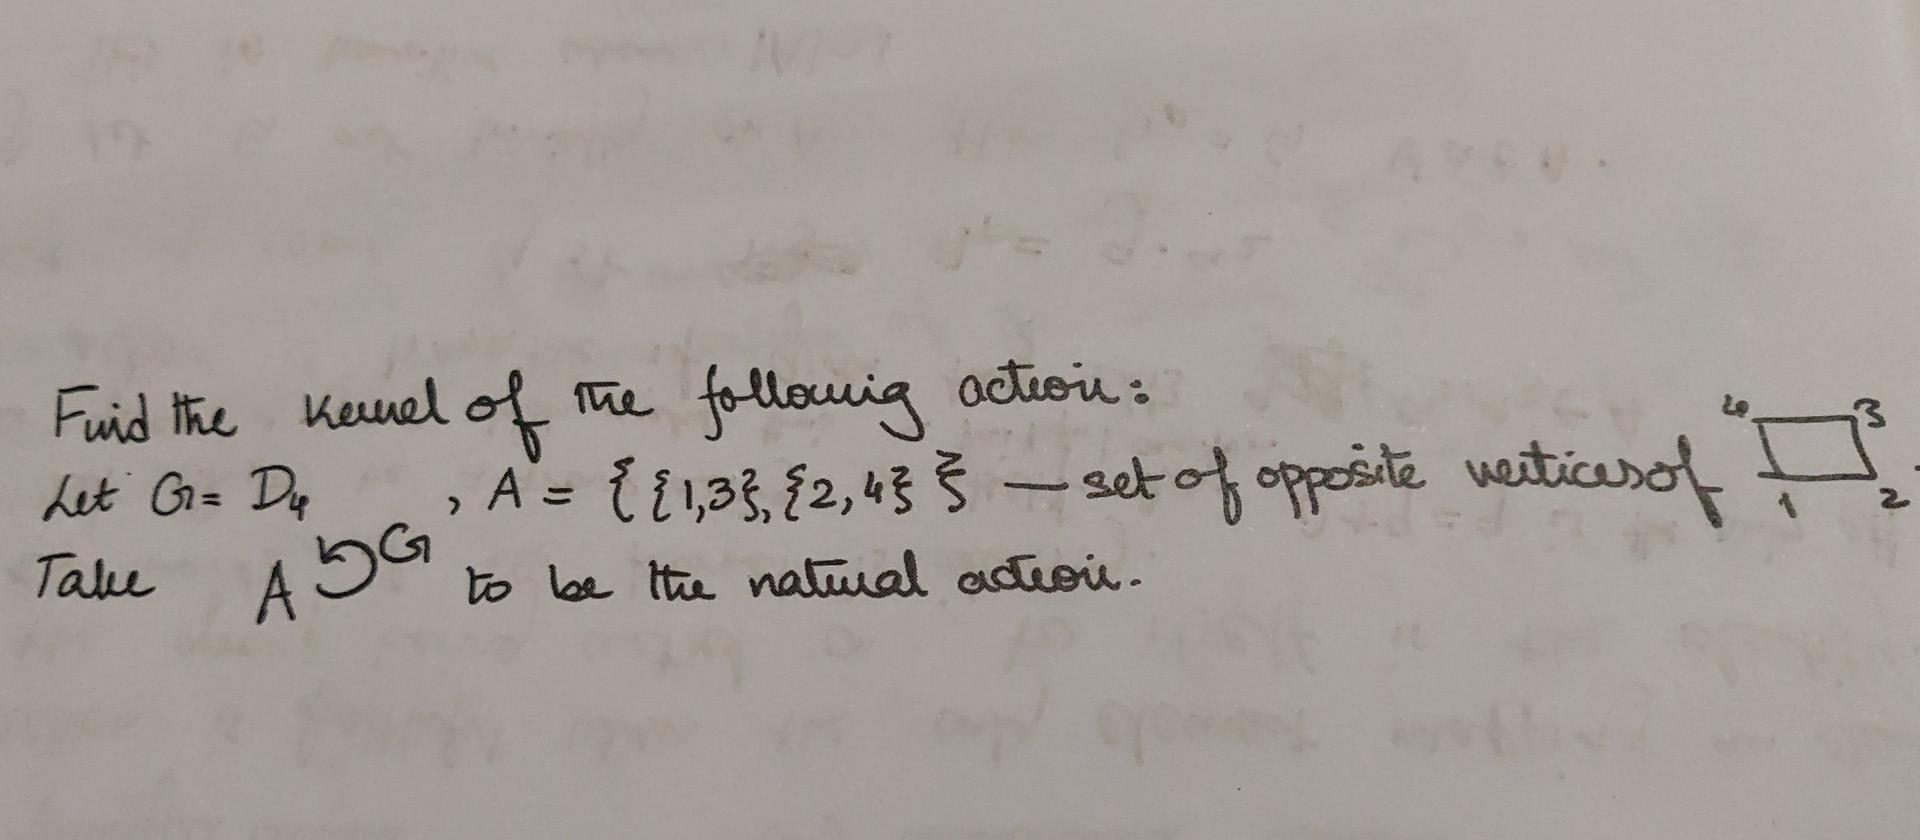 Find the kernel of the following action:
Let G = D₄ , A = { {1,3}, {2,4} } — set of opposite vertices of 4 3 1 2 .
Take A ↺ G to be the natural action.